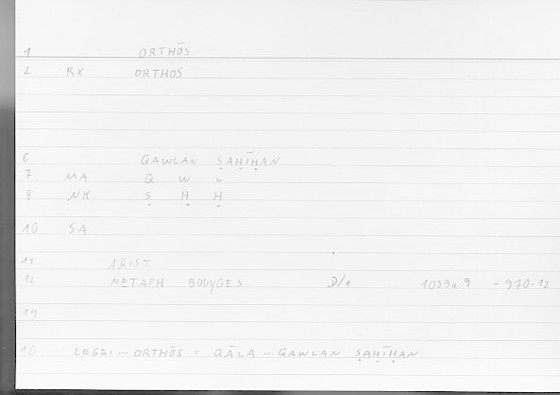 1 ORTHŌS
2 RX ORTHOS
6 QAWLAN ṢAḤĪḤAN
7 MA Q W L
8 NK Ṣ Ḥ Ḥ
10 SA
11 ARIST
12 METAPH BOUYGES 1039a9 - 970.12
14
16 LEGEI ... ORTHŌS = QĀLA ... QAWLAN ṢAḤĪḤAN